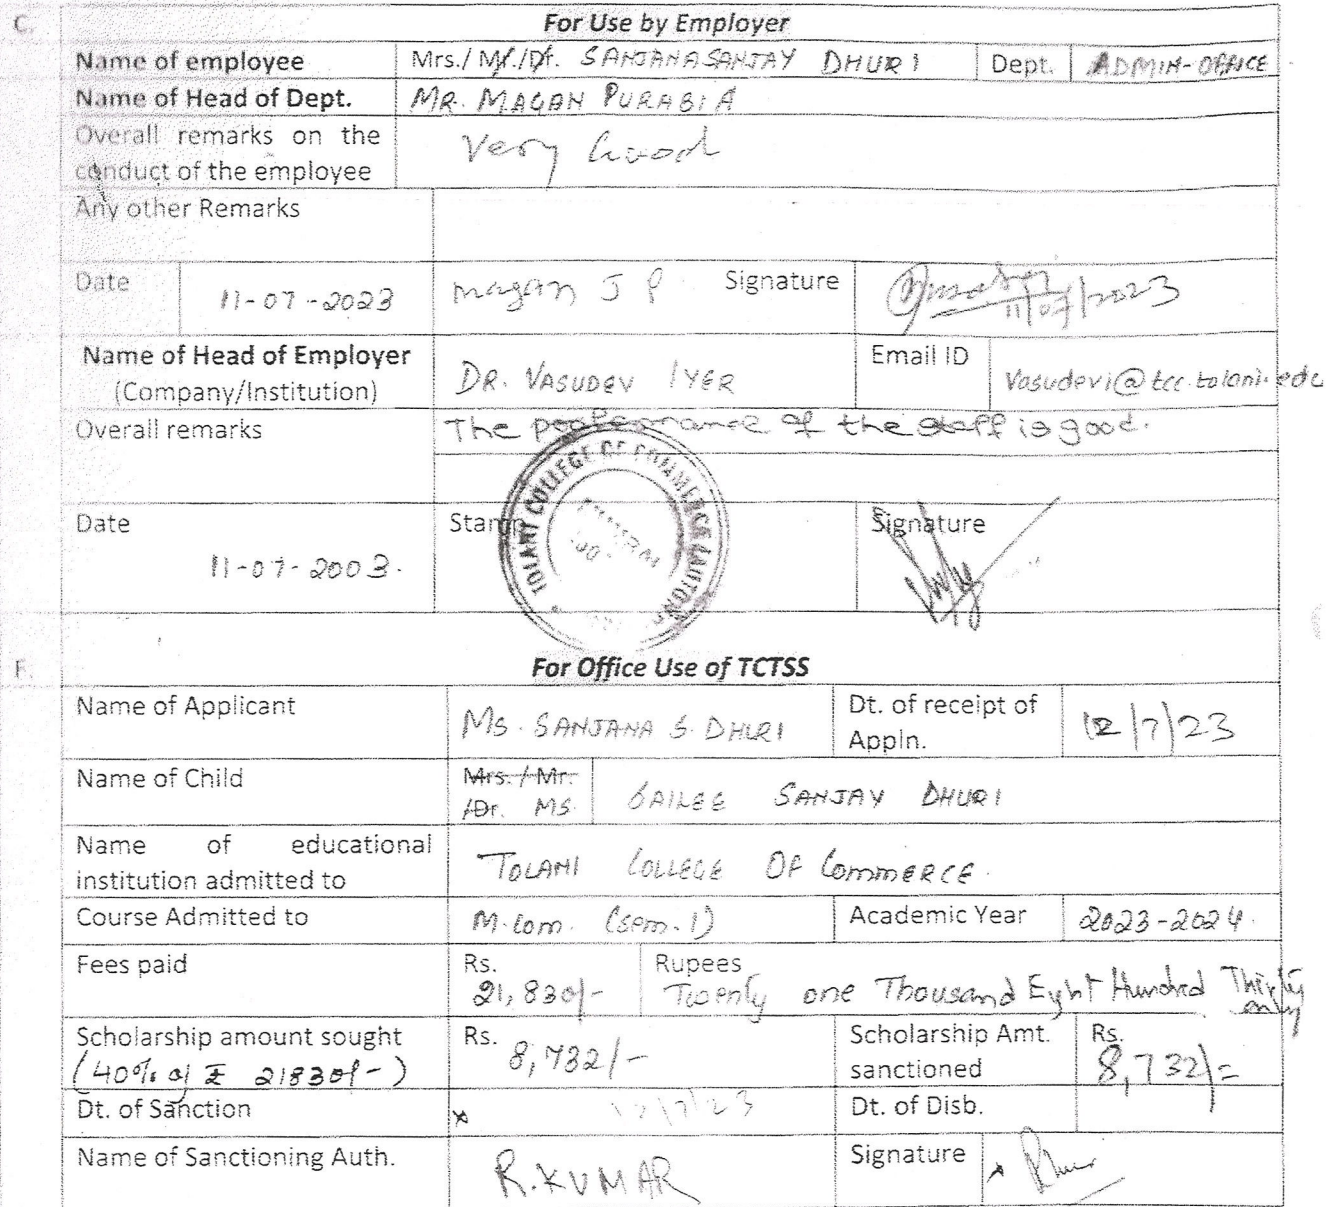 C. For Use by Employer
Name of employee Mrs./ Mr./Dr. SANJANA SANJAY DHURI Dept. ADMIN-OFFICE
Name of Head of Dept. MR. MAGAN PURABIA
Overall remarks on the
conduct of the employee Very Good
Any other Remarks
Date 11-07-2023 magan J P Signature 11/07/2023
Name of Head of Employer
(Company/Institution) DR. VASUDEV IYER Email ID Vasudevi@tcc.tolani.edu
Overall remarks The performance of the staff is good.
Date 11-07-2003. Stamp TOLANI COLLEGE OF COMMERCE (AUTONO Signature
F. For Office Use of TCTSS
Name of Applicant MS. SANJANA S. DHURI Dt. of receipt of
Appln. 12/7/23
Name of Child Mrs. / Mr.
/Dr. MS. SAILEE SANJAY DHURI
Name of educational
institution admitted to TOLANI COLLEGE OF COMMERCE.
Course Admitted to M.com. (sem.1) Academic Year 2023-2024.
Fees paid Rs. 21,830/- Rupees Twenty one Thousand Eyht Hundred Thirty
only
Scholarship amount sought Rs. 8,732/- Scholarship Amt.
sanctioned Rs. 8,732/=
(40% of ₹ 21830/-)
Dt. of Sanction x 12/7/23 Dt. of Disb.
Name of Sanctioning Auth. R.KUMAR Signature x